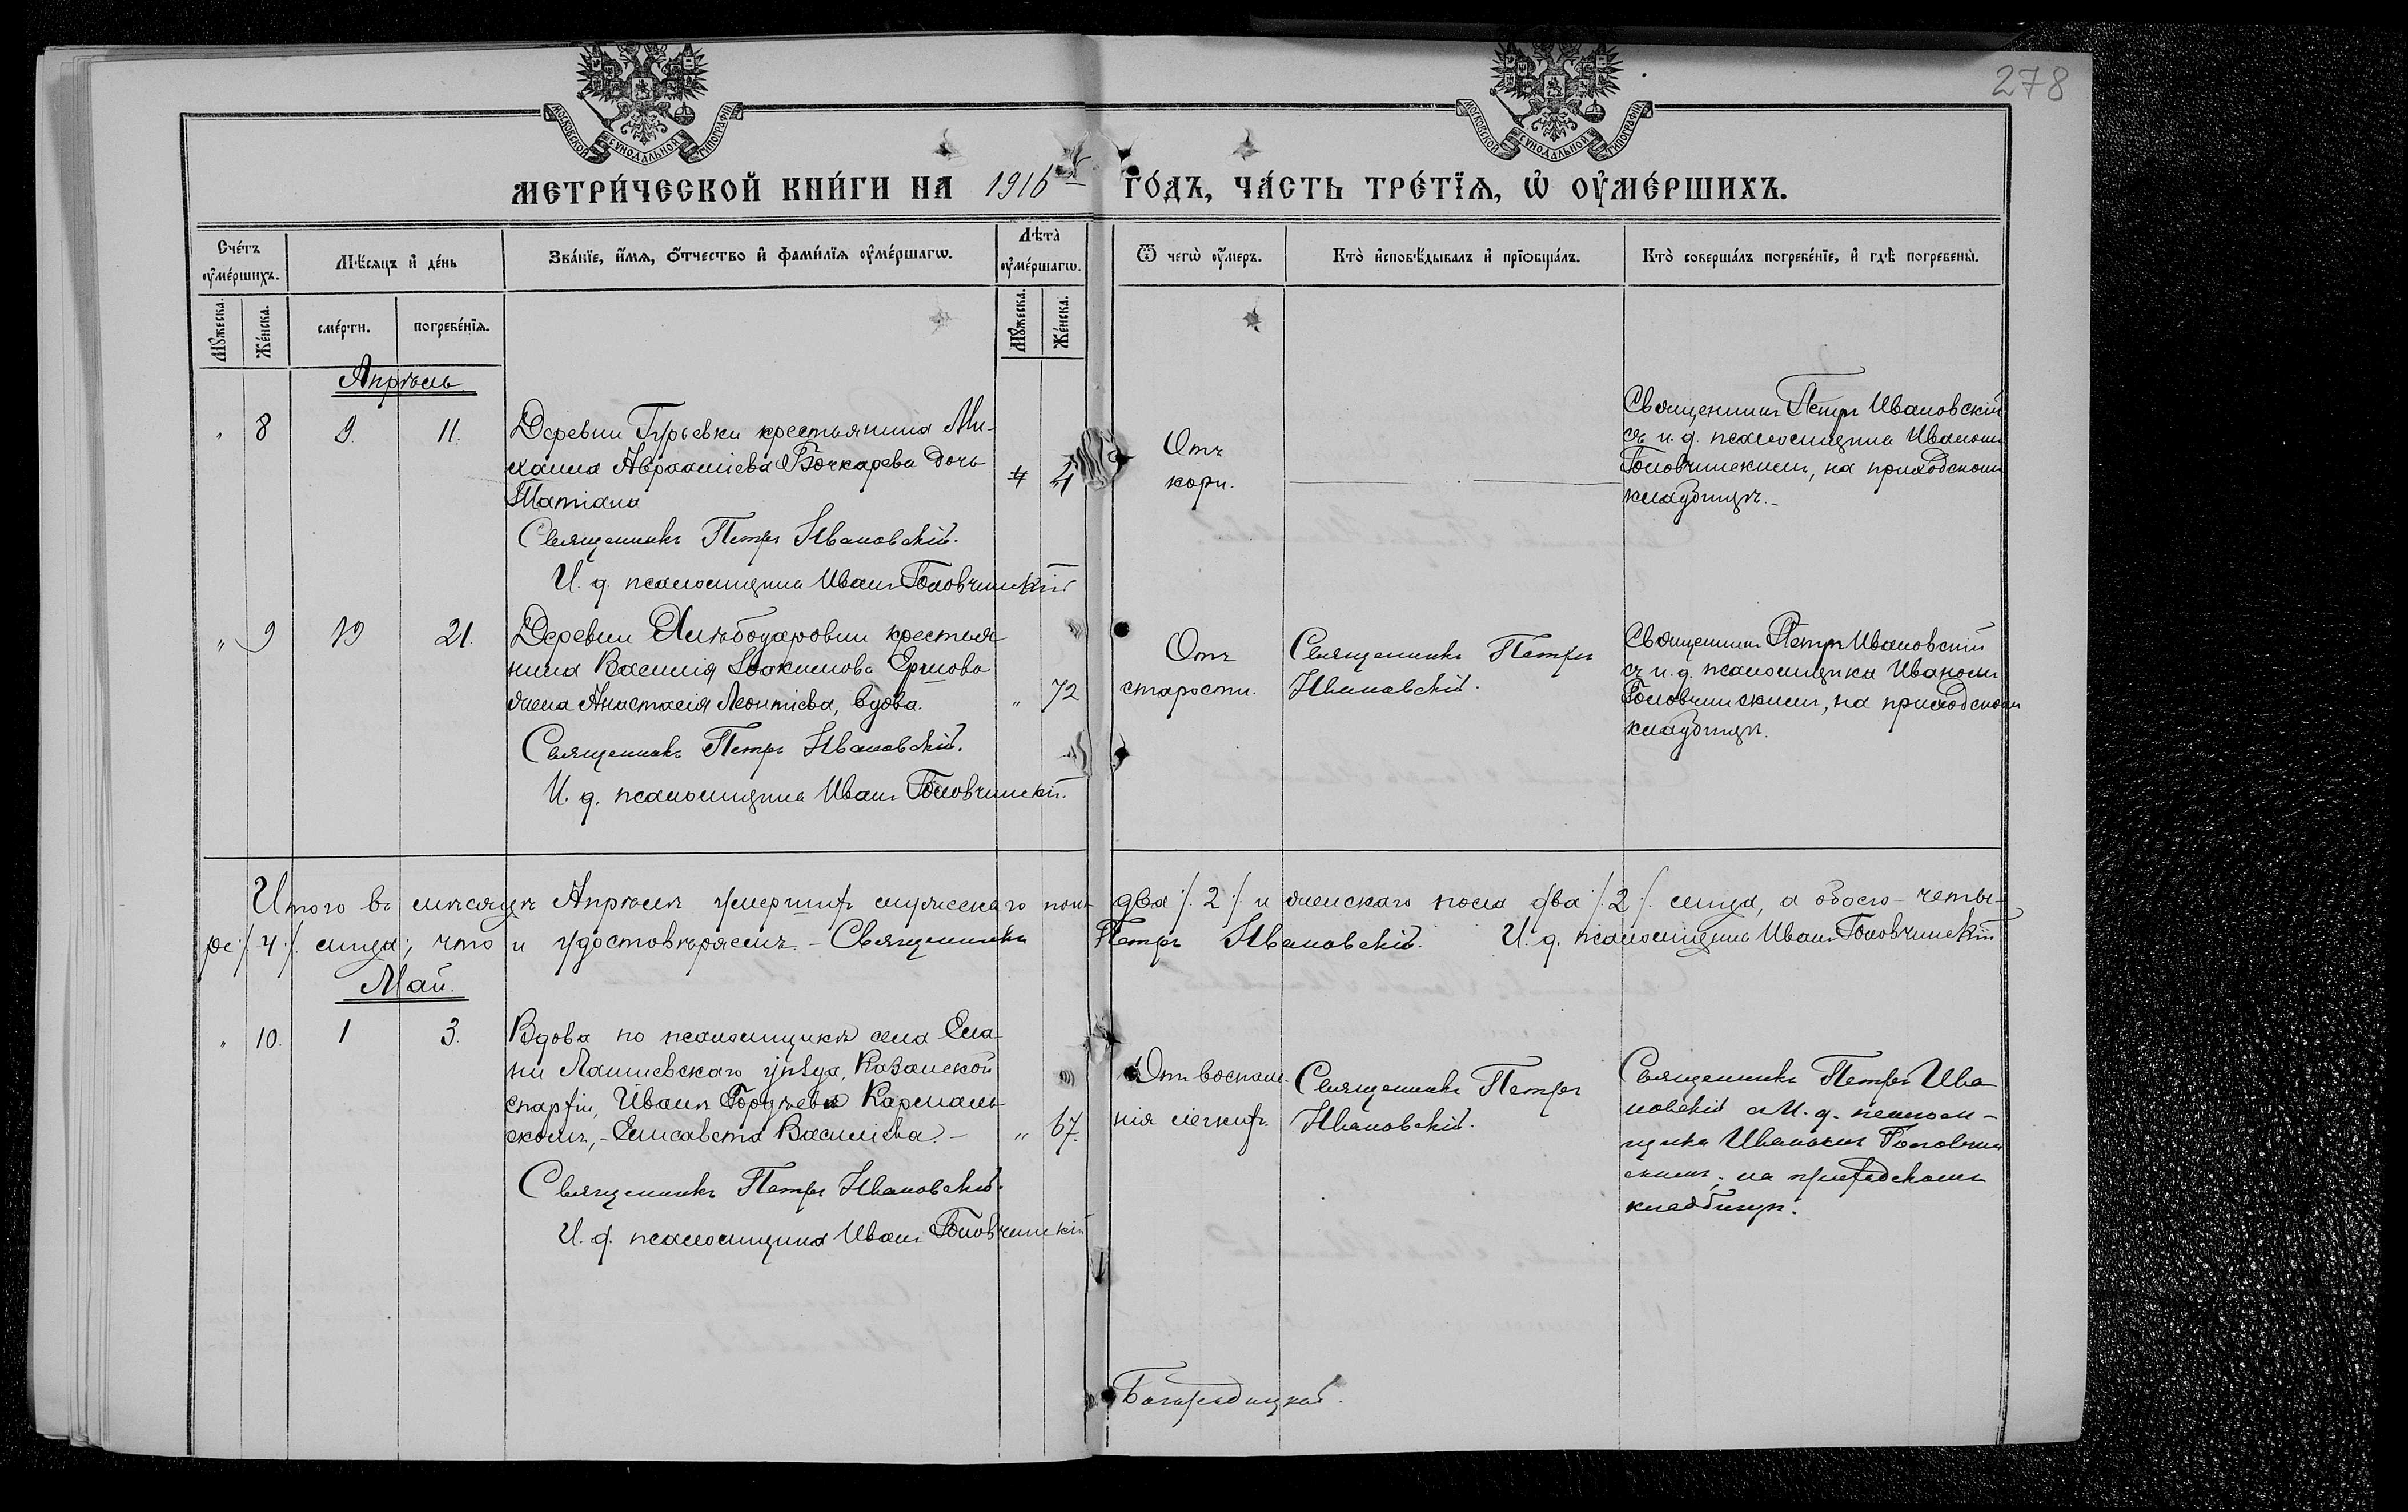 278
МОСКОВСКОЙ СѴНОДАЛЬНОЙ ТИПОГРАФІИ
МОСКОВСКОЙ СѴНОДАЛЬНОЙ ТИПОГРАФІИ
МЕТРИ́ЧЕСКОЙ КНИ́ГИ НА 1916 ГО́ДЪ, ЧА́СТЬ ТРЕ́ТЇѦ, Ѡ҆ ОУ҆МЕ́РШИХЪ.
Сче́тъ оу҆ме́ршихъ.
Мꙋ́жеска.
Же́нска.
Мѣ́сяцъ и҆ де́нь
сме́рти.
погребе́нїѧ.
Зва́нїе, и҆́мѧ, ѻ҆́тчество и҆ фами́лїѧ оу҆ме́ршагѡ.
Лѣта̀ оу҆ме́ршагѡ.
Мꙋ́жеска.
Же́нска.
Ѿ чегѡ̀ оу҆́меръ.
Кто̀ и҆сповѣ́дывалъ и҆ прїѡбща́лъ.
Кто̀ соверша́лъ погребе́нїе, и҆ гдѣ̀ погребены̀.
Апрѣль
" 8 9. 11.
Деревни Гурьевки крестьянина Ми-
хаила Авраамiева Бочкарева дочь
Татiана
4
Священникъ Петръ Ивановскій.
И. д. псаломщика Иванъ Головчинскій
Отъ
кори.
Священникъ Петръ Ивановскій
съ и. д. псаломщика Иваномъ
Головчинскимъ, на приходскомъ
кладбищѣ.-
" 9 19 21.
Деревни Хлѣбодаровки крестья
нина Василія Іоакимова
жена Анастасія Леонтіева, вдова.
" 72
Священникъ Петръ Ивановскій.
И. д. псаломщика Иванъ Головчинскій.
Отъ
старости.
Священникъ Петръ
Ивановскій.
Священникъ Петръ Ивановскій
съ и. д. псаломщика Иваномъ
Головчинскимъ, на приходскомъ
кладбищѣ.
Итого въ мѣсяцѣ Апрѣлѣ умершихъ мужескаго пола два /. 2 /. и женскаго пола два /. 2 /. лица, а обоего - четы-
ре /. 4 /. лица; что и удостовѣряемъ. - Священникъ Петръ Ивановскій. И. д. псаломщика Иванъ Головчинскій
Май.
" 10. 1 3.
Вдова по псаломщикѣ села Ела
ни Лаишевскаго уѣзда, Казанской
епархіи, Иванѣ
скомъ, - Елисавета Василіева. -
" 67.
Священникъ Петръ Ивановскій.
И. д. псаломщика Иванъ Головчинскій
Отъ воспале-
нія легкихъ.
Священникъ Петръ
Ивановскій.
Священникъ Петръ Ива
новскій съ И. д. псалом-
щика Иваномъ Головчин
скимъ, на приходскомъ
кладбищѣ.